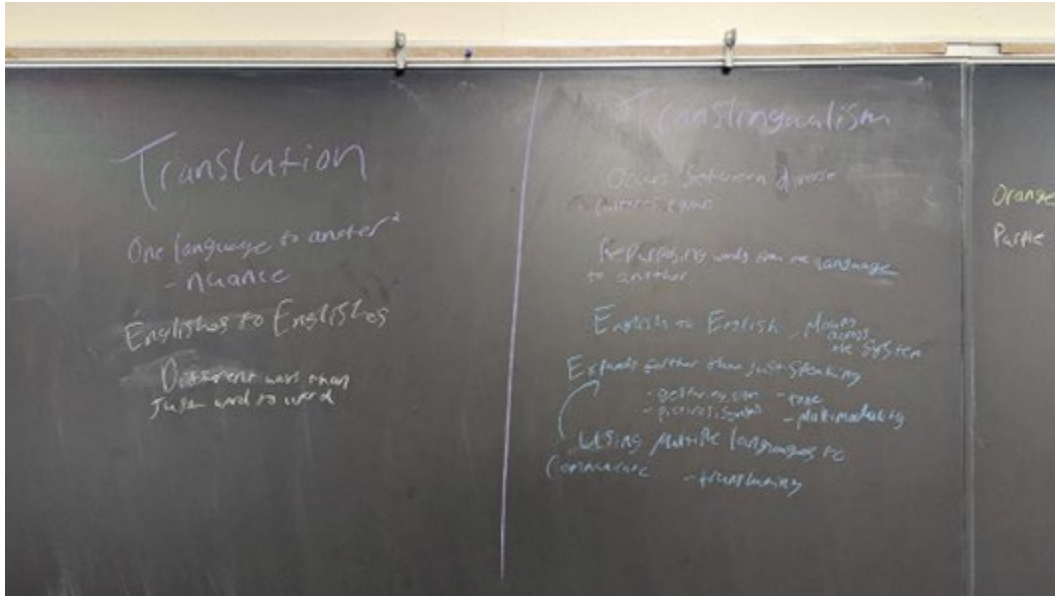 Translation
One language to another
- nuance
Englishes to Englishes
Different ways than
just word to word
Translingualism
Occurs between diverse
Repurposing words from one language
to another
English to English, Moves
across
the system
Expands further than just speaking
- tone
- pictures/symbols - Multimodality
Using Multiple languages to
Communicate
Orange
Purple